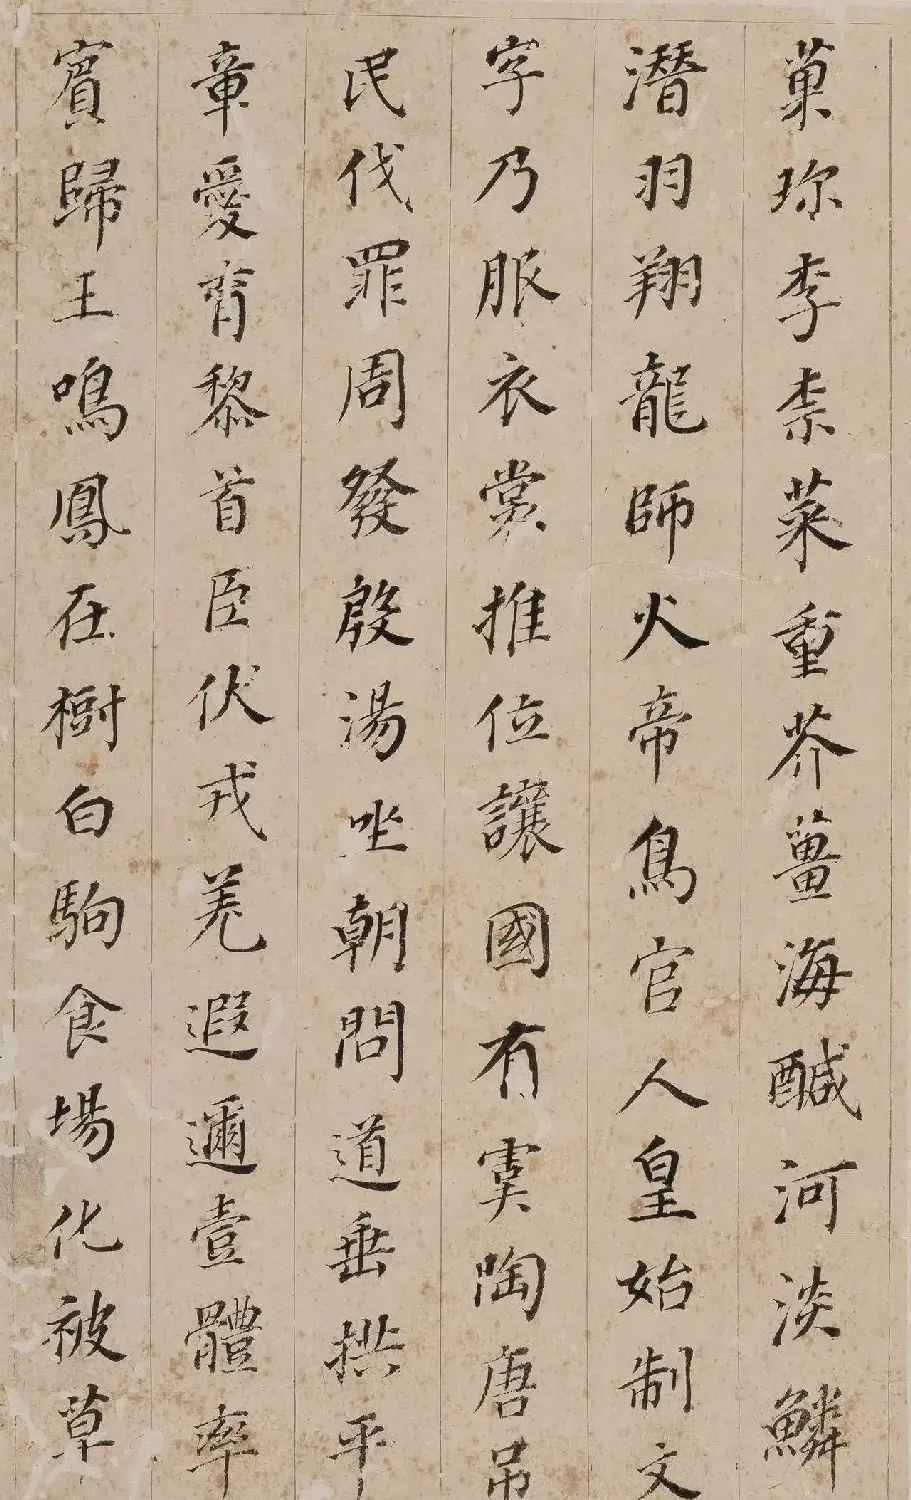 菓珎李柰菜重芥薑海醎河淡鱗
潛羽翔龍師火帝鳥官人皇始制文
字乃服衣裳推位讓國有虞陶唐吊
民伐罪周發殷湯坐朝問道垂拱平
章愛育黎首臣伏戎羌遐邇壹體率
賓歸王鳴鳳在樹白駒食場化被草